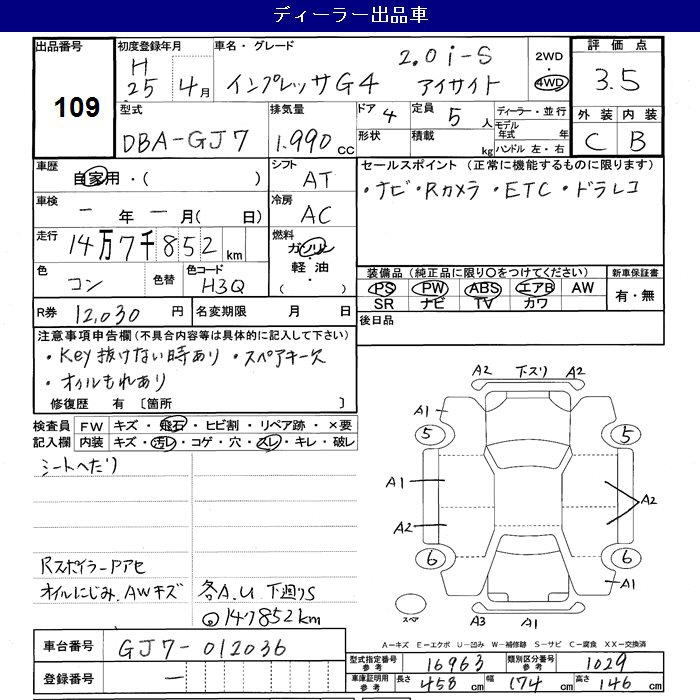 ディーラー出品車
出品番号
109
初度登録年月
H
25 4月
車名・グレード
2.0i-S
インプレッサG4 アイサイト
2WD
・
4WD
評価点
3.5
外装 内装
C B
型式
DBA-GJ7
排気量
1.990 cc
ドア 4
定員 5 人
形状
積載 kg
ディーラー・並行
モデル年式 年
ハンドル 左・右
車歴
自家用・( )
シフト
AT
車検
ー 年 ー 月( 日)
冷房
AC
走行
14万7千852km
燃料
ガソリン
・
軽油
・
( )
色
コン
色替
色コード
H3Q
R券 12,030 円
名変期限 月 日
セールスポイント (正常に機能するものに限ります)
・ナビ・Rカメラ・ETC・ドラレコ
装備品(純正品に限り○をつけてください)
PS PW ABS エアB AW
SR ナビ TV カワ
新車保証書
有・無
後日品
注意事項申告欄(不具合内容等は具体的に記入して下さい)
・Key抜けない時あり ・スペアキー欠
・オイルもれあり
修復歴 有 〔箇所 〕
検査員記入欄
FW キズ・飛石・ヒビ割・リペア跡・×要
内装 キズ・汚レ・コゲ・穴・スレ・キレ・破レ
シートへたり
Rスポイラー Pアセ
オイルにじみ.AWキズ
各A.U 下廻りS
◎147852km
A2 下スリ A2
A1
5 5
A1
A2
A2
6 6
A1
スペア
A3 A1
A-キズ E-エクボ U-凹み W-補修跡 S-サビ C-腐食 XX-交換済
車台番号 GJ7-012036
登録番号 ー
型式指定番号 参考 16963
類別区分番号 参考 1029
車庫証明用 参考
長さ 458 cm 幅 174 cm 高さ 146 cm